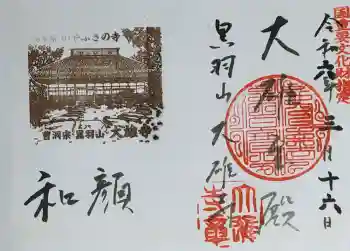 国重要文化財指定
令和六年三月十六日
大雄殿
黒羽山大雄寺
ふきの寺
曹洞宗 黒羽山 大雄寺
和顔